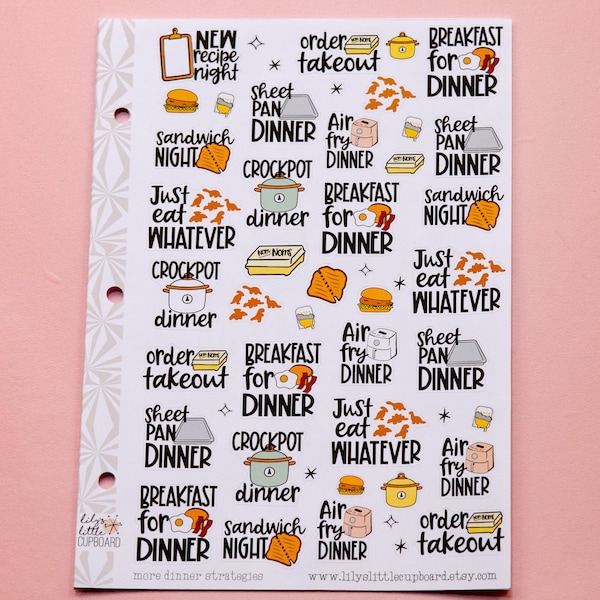 NEW
recipe
night
order
takeout
NOM NOMS
BREAKFAST
for
DINNER
sheet
PAN
DINNER
Air
fry
DINNER
sheet
PAN
DINNER
sandwich
NIGHT
CROCKPOT
dinner
BREAKFAST
for
DINNER
sandwich
NIGHT
Just
eat
WHATEVER
NOM NOMS
Just
eat
WHATEVER
CROCKPOT
dinner
Air
fry
DINNER
sheet
PAN
DINNER
order
takeout
NOM NOMS
BREAKFAST
for
DINNER
Just
eat
WHATEVER
sheet
PAN
DINNER
CROCKPOT
dinner
Air
fry
DINNER
BREAKFAST
for
DINNER
sandwich
NIGHT
Air
fry
DINNER
order
takeout
lily's
little
CUPBOARD
more dinner strategies
www.lilyslittlecupboard.etsy.com